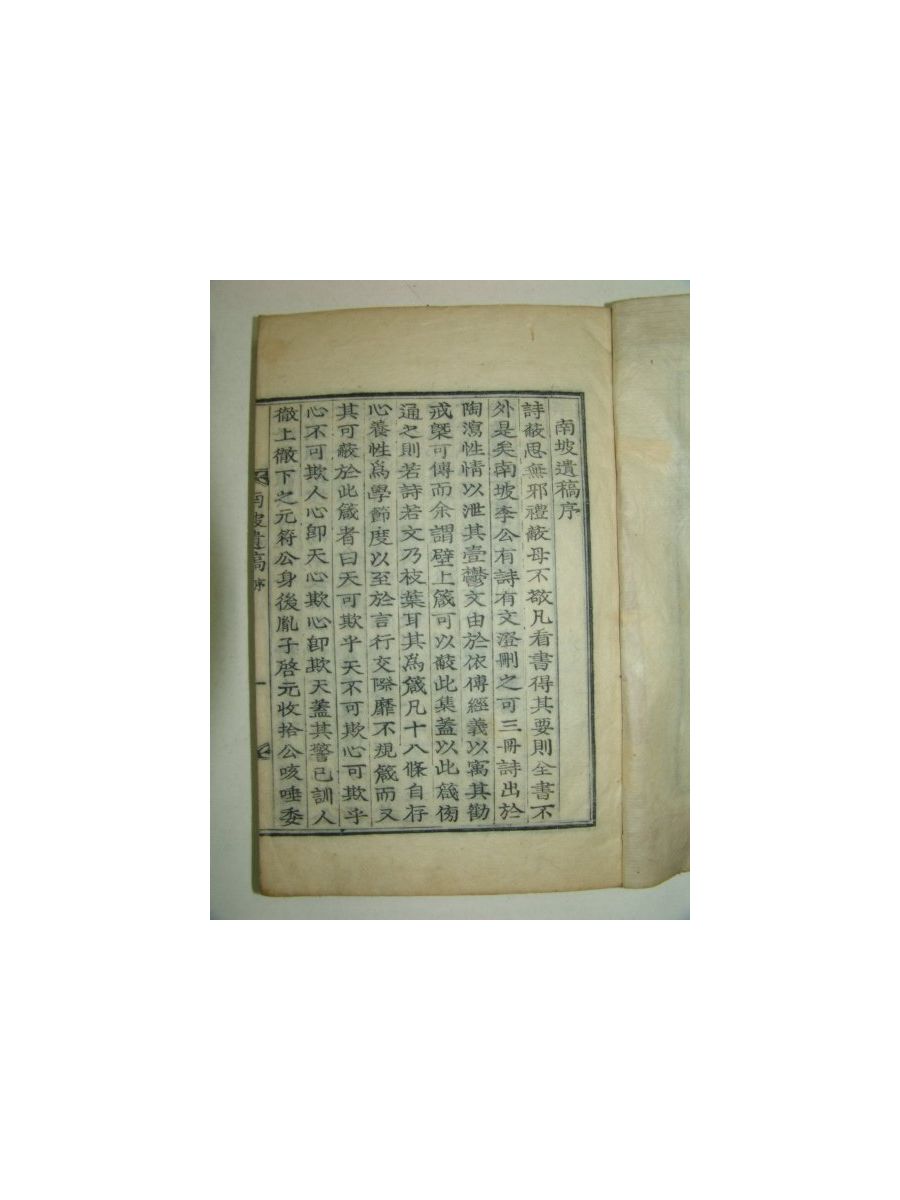 南坡遺稿序
詩蔽思無邪禮蔽毋不敬凡看書得其要則全書不
外是矣南坡李公有詩有文澄刪之可三冊詩出於
陶瀉性情以泄其壹鬱文由於依傳經義以寓其勸
戒槩可傳而余謂壁上箴可以蔽此集蓋以此箴傍
通之則若詩若文乃枝葉耳其爲箴凡十八條自存
心養性爲學節度以至於言行交際靡不規箴而又
其可蔽於此箴者曰天可欺乎天不可欺心可欺乎
心不可欺人心卽天心欺心卽欺天蓋其警己訓人
徹上徹下之元符公身後胤子啓元收拾公咳唾委
南坡遺稿 序 一